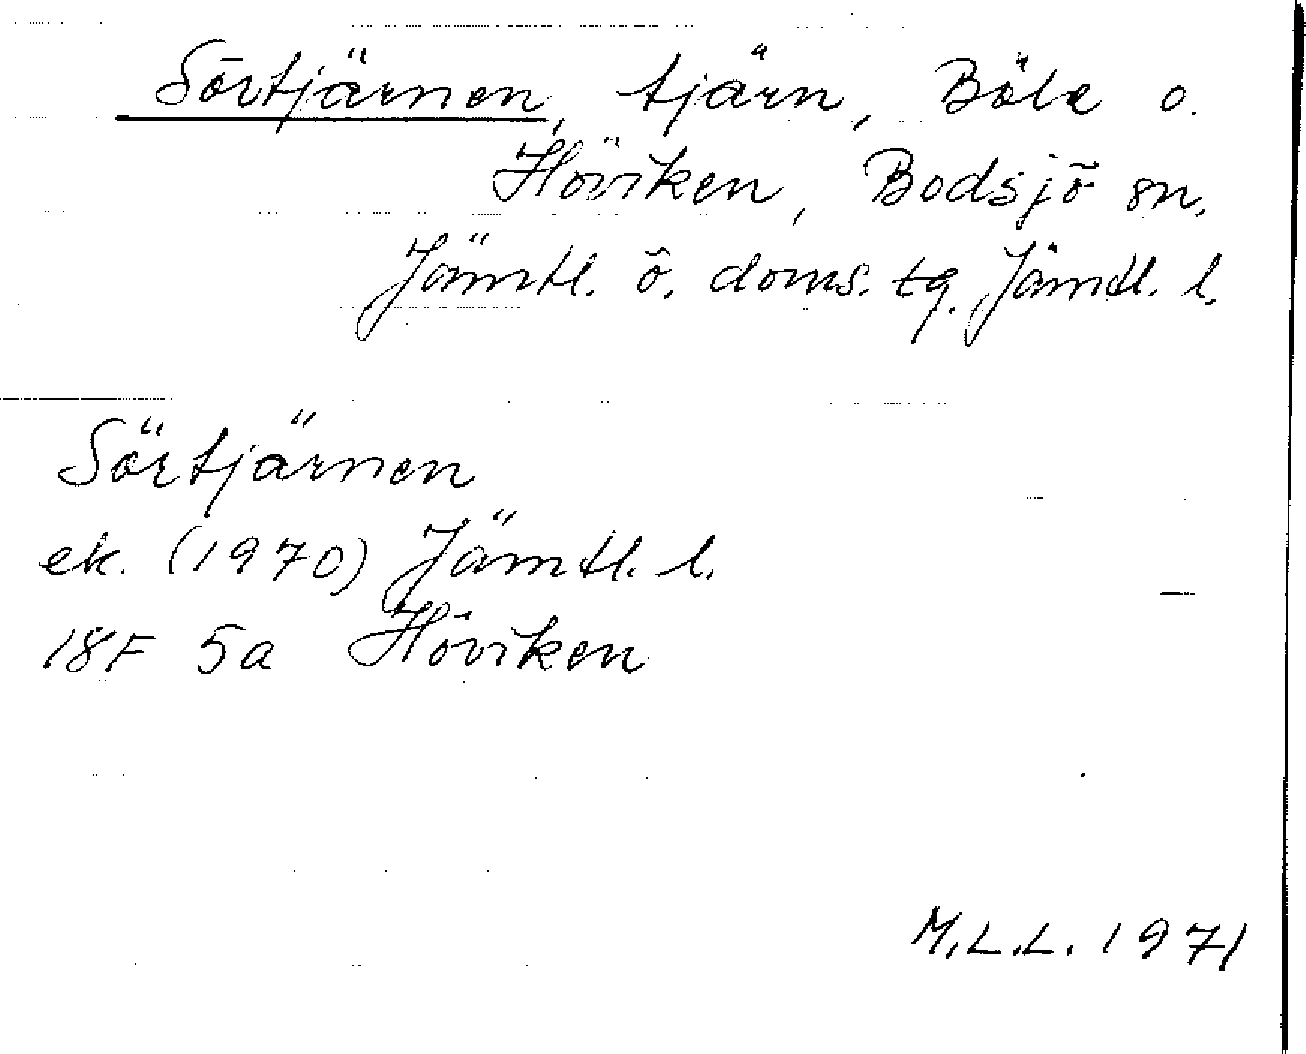 Sörtjärnen, tjärn, Böle o.
Höviken, Bodsjö sn,
Jämtl. ö. doms. tg. Jämtl. l.
Sörtjärnen
ek. (1970) Jämtl. l.
18F 5a Höviken
M.L.L. 1971